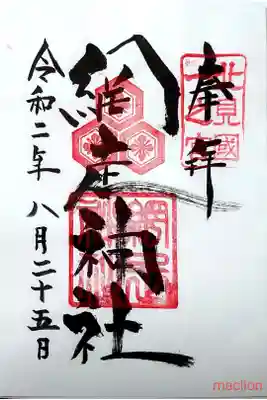 奉拝
網走神社
令和二年 八月二十五日
maclion